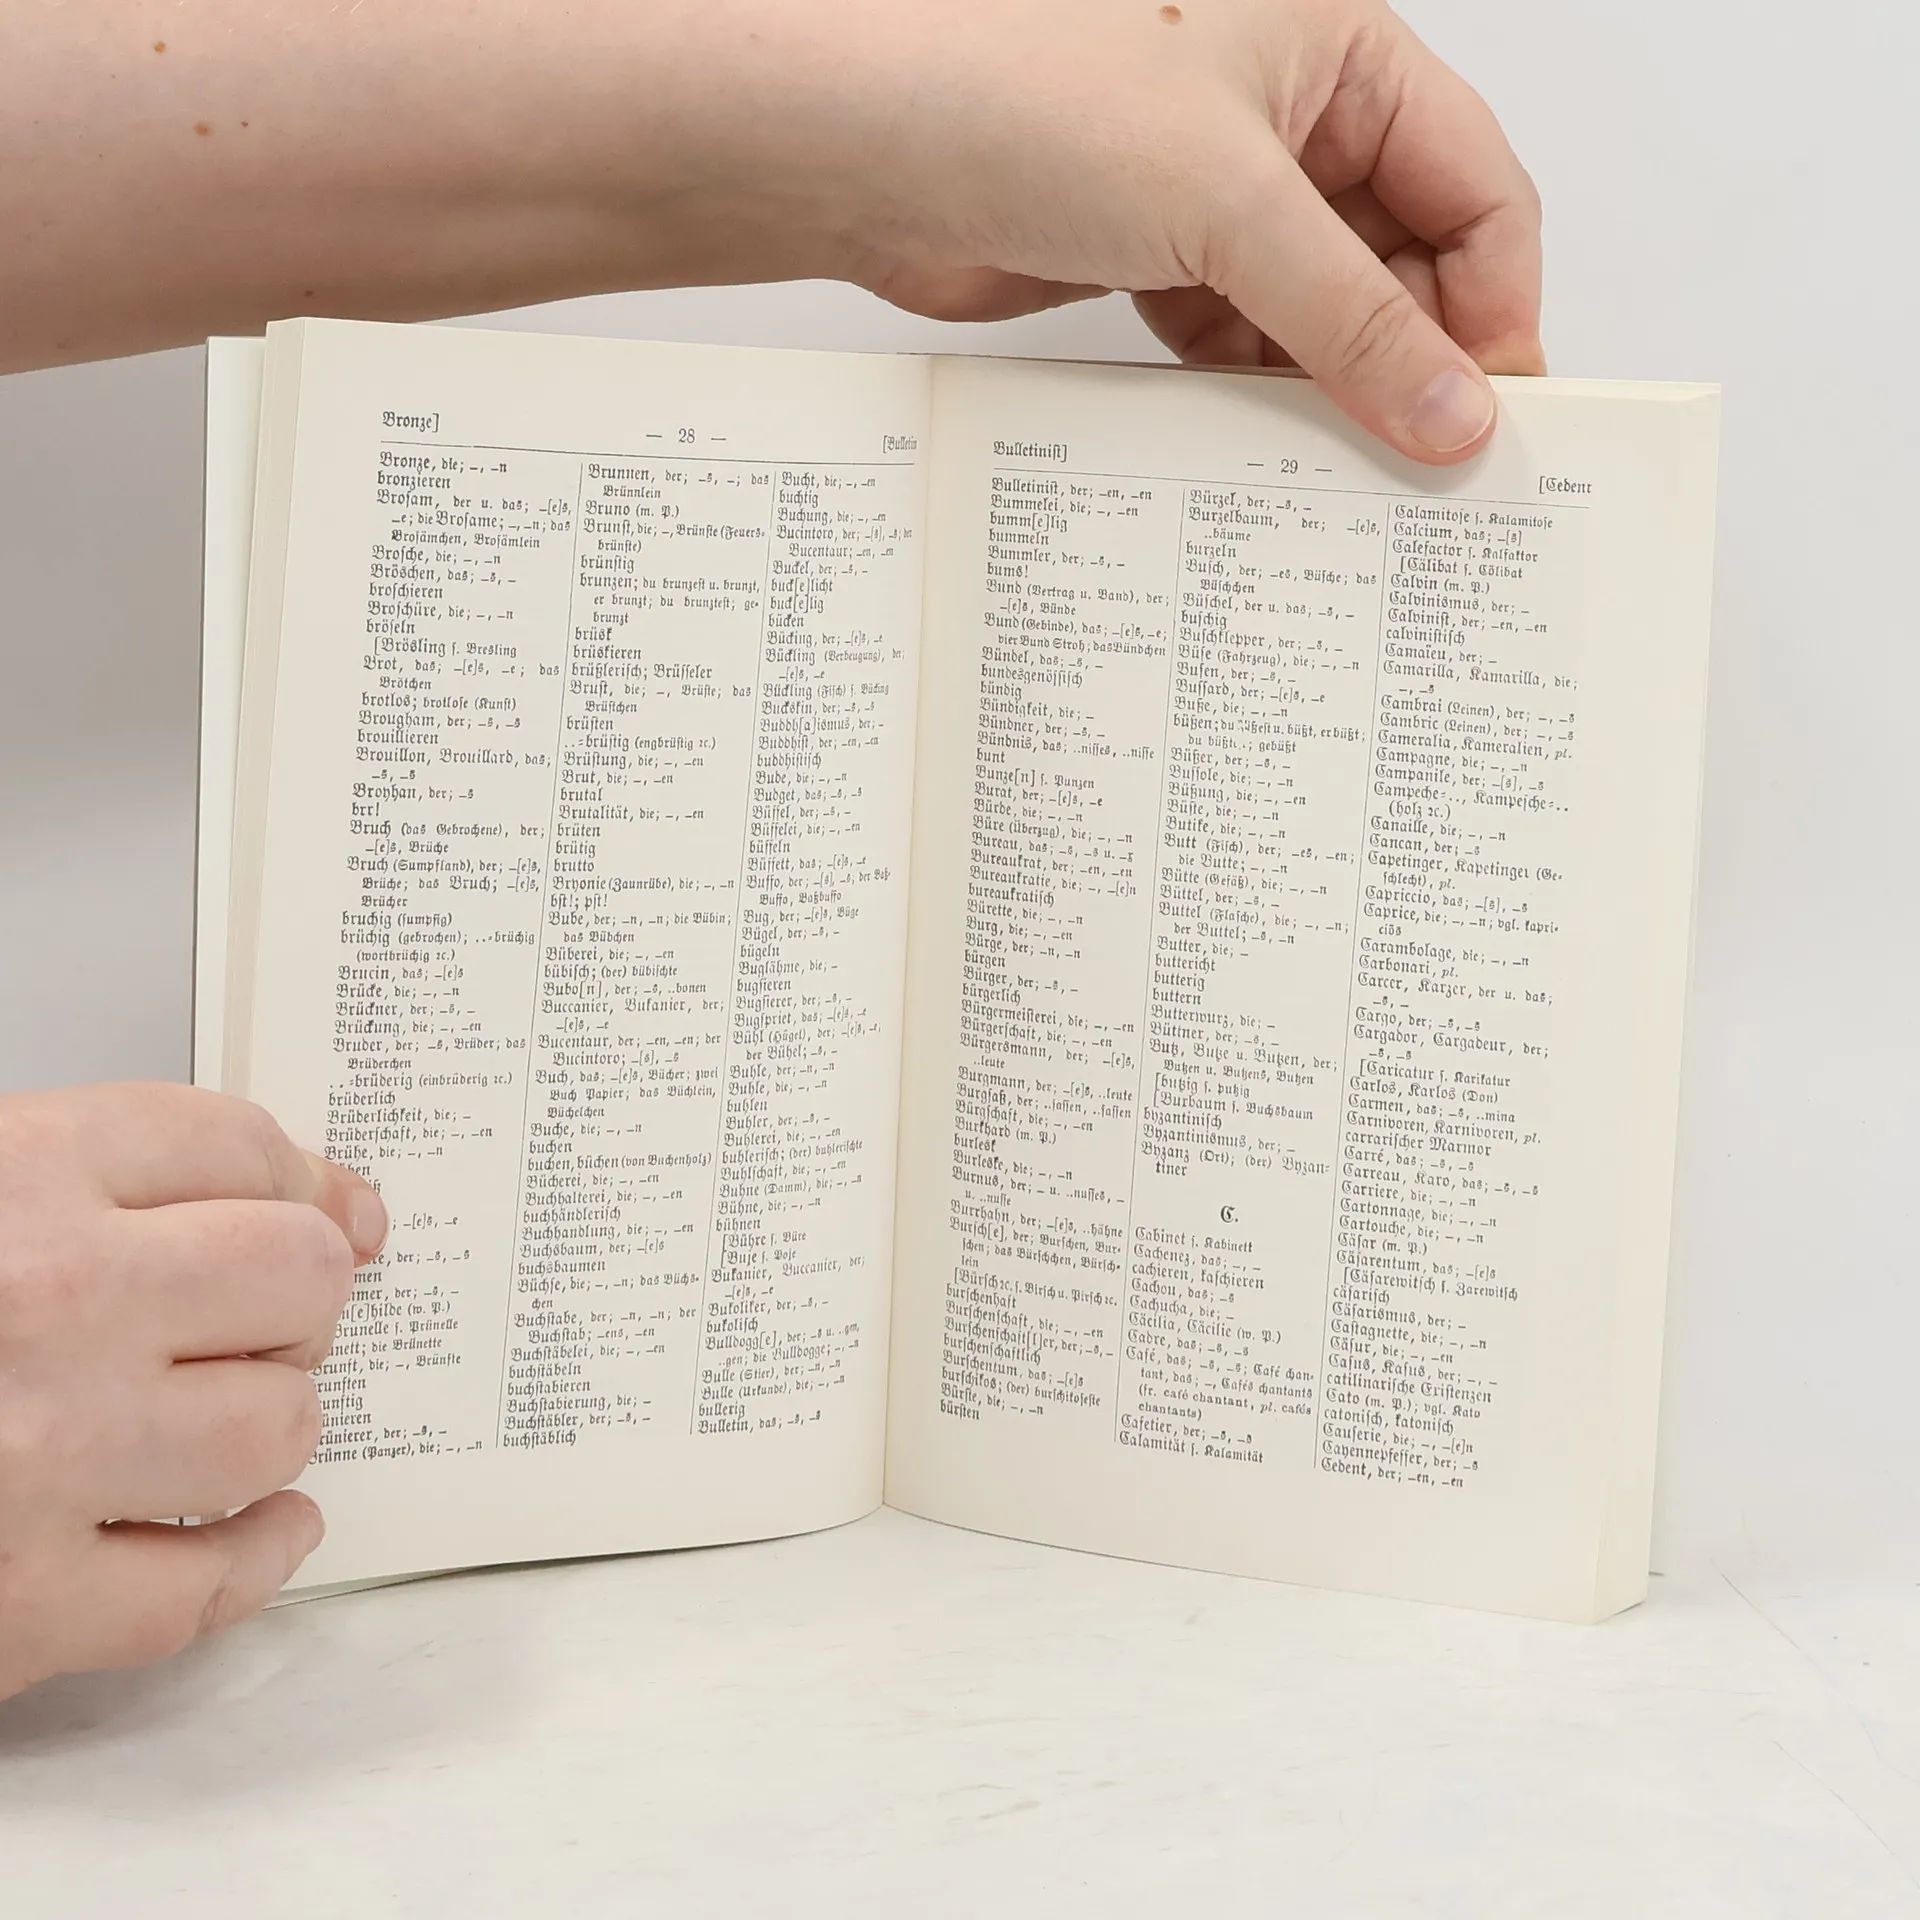 Bronze]
— 28 —
[Bulletin
Bronze, die; –, –n
bronzieren
Broſam, der u. das; –[e]s,
–e; die Broſame; –, –n; das
Broſämchen, Broſämlein
Broſche, die; –, –n
Bröschen, das; –s, –
broſchieren
Broſchüre, die; –, –n
bröſeln
[Brösling ſ. Bresling
Brot, das; –[e]s, –e; das
Brötchen
brotlos; brotloſe (Kunſt)
Brougham, der; –s, –s
brouillieren
Brouillon, Brouillard, das;
–s, –s
Broyhan, der; –s
brr!
Bruch (das Gebrochene), der;
–[e]s, Brüche
Bruch (Sumpfland), der; –[e]s,
Brüche; das Bruch; –[e]s,
Brücher
bruchig (ſumpfig)
brüchig (gebrochen); ..=brüchig
(wortbrüchig ꝛc.)
Brucin, das; –[e]s
Brücke, die; –, –n
Brückner, der; –s, –
Brückung, die; –, –en
Bruder, der; –s, Brüder; das
Brüderchen
..=brüderig (einbrüderig ꝛc.)
brüderlich
Brüderlichkeit, die; –
Brüderſchaft, die; –, –en
Brühe, die; –, –n
; –[e]s, –e
der; –s, –s
der; –s, –
hilde (w. P.)
Brunelle ſ. Prünelle
nett; die Brünette
Brunft, die; –, Brünfte
runften
unftig
ünieren
rünierer, der; –s, –
Brünne (Panzer), die; –, –n
Brunnen, der; –s, –; das
Brünnlein
Bruno (m. P.)
Brunſt, die; –, Brünſte (Feuers=
brünſte)
brünſtig
brunzen; du brunzeſt u. brunzt,
er brunzt; du brunzteſt; ge=
brunzt
brüsk
brüskieren
brüßleriſch; Brüſſeler
Bruſt, die; –, Brüſte; das
Brüſtchen
brüſten
..=brüſtig (engbrüſtig ꝛc.)
Brüſtung, die; –, –en
Brut, die; –, –en
brutal
Brutalität, die; –, –en
brüten
brütig
brutto
Bryonie (Zaunrübe), die; –, –n
bſt!; pſt!
Bube, der; –n, –n; die Bübin;
das Bübchen
Büberei, die; –, –en
bübiſch; (der) bübiſchte
Bubo[n], der; –s, ..bonen
Buccanier, Bukanier, der;
–[e]s, –e
Bucentaur, der; –en, –en; der
Bucintoro; –[s], –s
Buch, das; –[e]s, Bücher; zwei
Buch Papier; das Büchlein,
Büchelchen
Buche, die; –, –n
buchen
buchen, büchen (von Buchenholz)
Bücherei, die; –, –en
Buchhalterei, die; –, –en
buchhändleriſch
Buchhandlung, die; –, –en
Buchsbaum, der; –[e]s
buchsbaumen
Büchſe, die; –, –n; das Büchs=
chen
Buchſtabe, der; –n, –n; der
Buchſtab; –ens, –en
Buchſtäbelei, die; –, –en
buchſtäbeln
buchſtabieren
Buchſtabierung, die; –
Buchſtäbler, der; –s, –
buchſtäblich
Bucht, die; –, –en
buchtig
Buchung, die; –, –en
Bucintoro, der; –[s], –s; der
Bucentaur; –en, –en
Buckel, der; –s, –
buck[e]licht
buck[e]lig
bücken
Bücking, der; –[e]s, –e
Bückling (Verbeugung), der;
–[e]s, –e
Bückling (Fiſch) ſ. Bücking
Buckskin, der; –s, –s
Buddh[a]ismus, der; –
Buddhiſt, der; –en, –en
buddhiſtiſch
Bude, die; –, –n
Budget, das; –s, –s
Büffel, der; –s, –
Büffelei, die; –, –en
büffeln
Büffett, das; –[e]s, –e
Buffo, der; –[s], –s; der Baß=
Buffo, Baßbuffo
Bug, der; –[e]s, Büge
Bügel, der; –s, –
bügeln
Buglähme, die; –
bugſieren
Bugſierer, der; –s, –
Bugſpriet, das; –[e]s, –e
Bühl (Hügel), der; –[e]s, –e;
der Bühel; –s, –
Buhle, der; –n, –n
Buhle, die; –, –n
buhlen
Buhler, der; –s, –
Buhlerei, die; –, –en
buhleriſch; (der) buhleriſchte
Buhlſchaft, die; –, –en
Buhne (Damm), die; –, –n
Bühne, die; –, –n
bühnen
[Bühre ſ. Büre
[Buje ſ. Boje
Bukanier, Buccanier, der;
–[e]s, –e
Bukoliker, der; –s, –
bukoliſch
Bulldogg[e], der; –s u. ..gen,
..gen; die Bulldogge; –, –n
Bulle (Stier), der; –n, –n
Bulle (Urkunde), die; –, –n
bullerig
Bulletin, das; –s, –s
Bulletiniſt]
— 29 —
[Cedent
Bulletiniſt, der; –en, –en
Bummelei, die; –, –en
bumm[e]lig
bummeln
Bummler, der; –s, –
bums!
Bund (Vertrag u. Band), der;
–[e]s, Bünde
Bund (Gebinde), das; –[e]s, –e;
vier Bund Stroh; das Bündchen
Bündel, das; –s, –
bundesgenöſſiſch
bündig
Bündigkeit, die; –
Bündner, der; –s, –
Bündnis, das; ..niſſes, ..niſſe
bunt
Bunze[n] ſ. Punzen
Burat, der; –[e]s, –e
Bürde, die; –, –n
Büre (Überzug), die; –, –n
Bureau, das; –s, –s u. –x
Bureaukrat, der; –en, –en
Bureaukratie, die; –, –[e]n
bureaukratiſch
Bürette, die; –, –n
Burg, die; –, –en
Bürge, der; –n, –n
bürgen
Bürger, der; –s, –
bürgerlich
Bürgermeiſterei, die; –, –en
Bürgerſchaft, die; –, –en
Bürgersmann, der; –[e]s,
..leute
Burgmann, der; –[e]s, ..leute
Burgſaß, der; ..ſaſſen, ..ſaſſen
Bürgſchaft, die; –, –en
Burkhard (m. P.)
burlesk
Burleske, die; –, –n
Burnus, der; – u. ..nuſſes, –
u. ..nuſſe
Burrhahn, der; –[e]s, ..hähne
Burſch[e], der; Burſchen, Bur=
ſchen; das Bürſchchen, Bürſch=
lein
[Bürſch ꝛc. ſ. Birſch u. Pirſch ꝛc.
burſchenhaft
Burſchenſchaft, die; –, –en
Burſchenſchaft[l]er, der; –s, –
burſchenſchaftlich
Burſchentum, das; –[e]s
burſchikos; (der) burſchikoſeſte
Bürſte, die; –, –n
bürſten
Bürzel, der; –s, –
Burzelbaum, der; –[e]s,
..bäume
burzeln
Buſch, der; –es, Büſche; das
Büſchchen
Büſchel, der u. das; –s, –
buſchig
Buſchklepper, der; –s, –
Büſe (Fahrzeug), die; –, –n
Buſen, der; –s, –
Buſſard, der; –[e]s, –e
Buße, die; –, –n
büßen; du büßeſt u. büßt, er büßt;
du büßt..; gebüßt
Büßer, der; –s, –
Buſſole, die; –, –n
Büßung, die; –, –en
Büſte, die; –, –n
Butike, die; –, –n
Butt (Fiſch), der; –es, –en;
die Butte; –, –n
Bütte (Gefäß), die; –, –n
Büttel, der; –s, –
Buttel (Flaſche), die; –, –n;
der Buttel; –s, –n
Butter, die; –
buttericht
butterig
buttern
Butterwurz, die; –
Büttner, der; –s, –
Butz, Butze u. Butzen, der;
Butzen u. Butzens, Butzen
[butzig ſ. putzig
[Buxbaum ſ. Buchsbaum
byzantiniſch
Byzantinismus, der; –
Byzanz (Ort); (der) Byzan=
tiner
C.
Cabinet ſ. Kabinett
Cachenez, das; –, –
cachieren, kaſchieren
Cachou, das; –s
Cachucha, die; –
Cäcilia, Cäcilie (w. P.)
Cadre, das; –s, –s
Café, das; –s, –s; Café chan=
tant, das; –, Cafés chantants
(fr. café chantant, pl. cafés
chantants)
Cafetier, der; –s, –s
Calamität ſ. Kalamität
Calamitoſe ſ. Kalamitoſe
Calcium, das; –[s]
Calefactor ſ. Kalfaktor
[Cälibat ſ. Cölibat
Calvin (m. P.)
Calvinismus, der; –
Calviniſt, der; –en, –en
calviniſtiſch
Camaïeu, der; –
Camarilla, Kamarilla, die;
–, –s
Cambrai (Leinen), der; –, –s
Cambric (Leinen), der; –, –s
Cameralia, Kameralien, pl.
Campagne, die; –, –n
Campanile, der; –[s], –s
Campeche=.., Kampeſche=..
(holz ꝛc.)
Canaille, die; –, –n
Cancan, der; –s
Capetinger, Kapetinger (Ge=
ſchlecht), pl.
Capriccio, das; –[s], –s
Caprice, die; –, –n; vgl. kapri=
ciös
Carambolage, die; –, –n
Carbonari, pl.
Carcer, Karzer, der u. das;
–s, –
Cargo, der; –s, –s
Cargador, Cargadeur, der;
–s, –s
[Caricatur ſ. Karikatur
Carlos, Karlos (Don)
Carmen, das; –s, ..mina
Carnivoren, Karnivoren, pl.
carrariſcher Marmor
Carré, das; –s, –s
Carreau, Karo, das; –s, –s
Carriere, die; –, –n
Cartonnage, die; –, –n
Cartouche, die; –, –n
Cäſar (m. P.)
Cäſarentum, das; –[e]s
[Cäſarewitſch ſ. Zarewitſch
cäſariſch
Cäſarismus, der; –
Caſtagnette, die; –, –n
Cäſur, die; –, –en
Caſus, Kaſus, der; –, –
catilinariſche Exiſtenzen
Cato (m. P.); vgl. Kato
catoniſch, katoniſch
Cauſerie, die; –, –[e]n
Cayennepfeffer, der; –s
Cedent, der; –en, –en